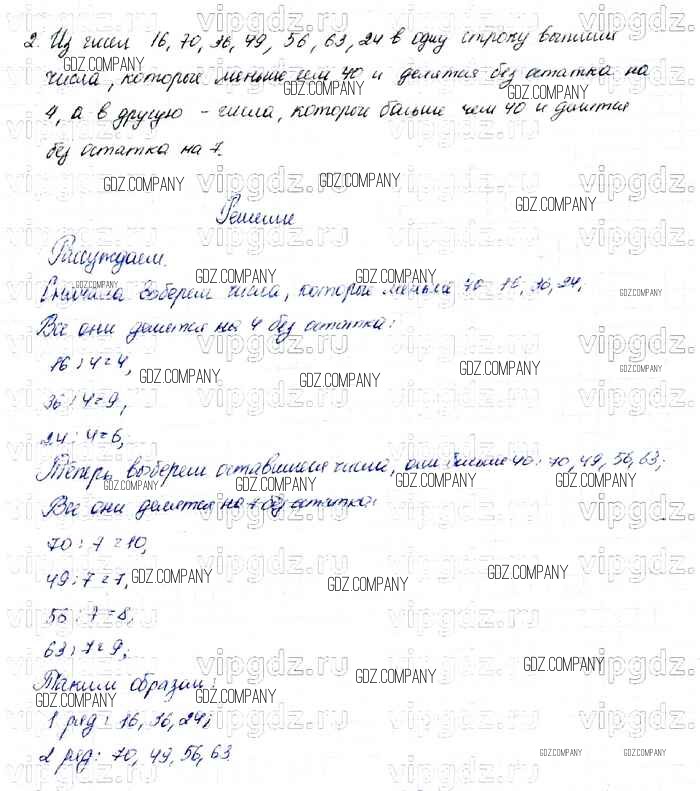 2. Из чисел 16, 70, 36, 49, 56, 63, 24 в одну строку выпиши
числа, которые меньше чем 40 и делятся без остатка на
4, а в другую - числа, которые больше чем 40 и делятся
без остатка на 7.
Решение
Рассуждаем.
Сначала выберем числа, которые меньше 40: 16, 36, 24,
Все они делятся на 4 без остатка:
16 : 4 = 4,
36 : 4 = 9,
24 : 4 = 6,
Теперь выберем оставшиеся числа, они больше 40: 70, 49, 56, 63;
Все они делятся на 7 без остатка:
70 : 7 = 10,
49 : 7 = 7,
56 : 7 = 8,
63 : 7 = 9;
Таким образом:
1 ряд: 16, 36, 24;
2 ряд: 70, 49, 56, 63.
vipgdz.ru
GDZ.COMPANY